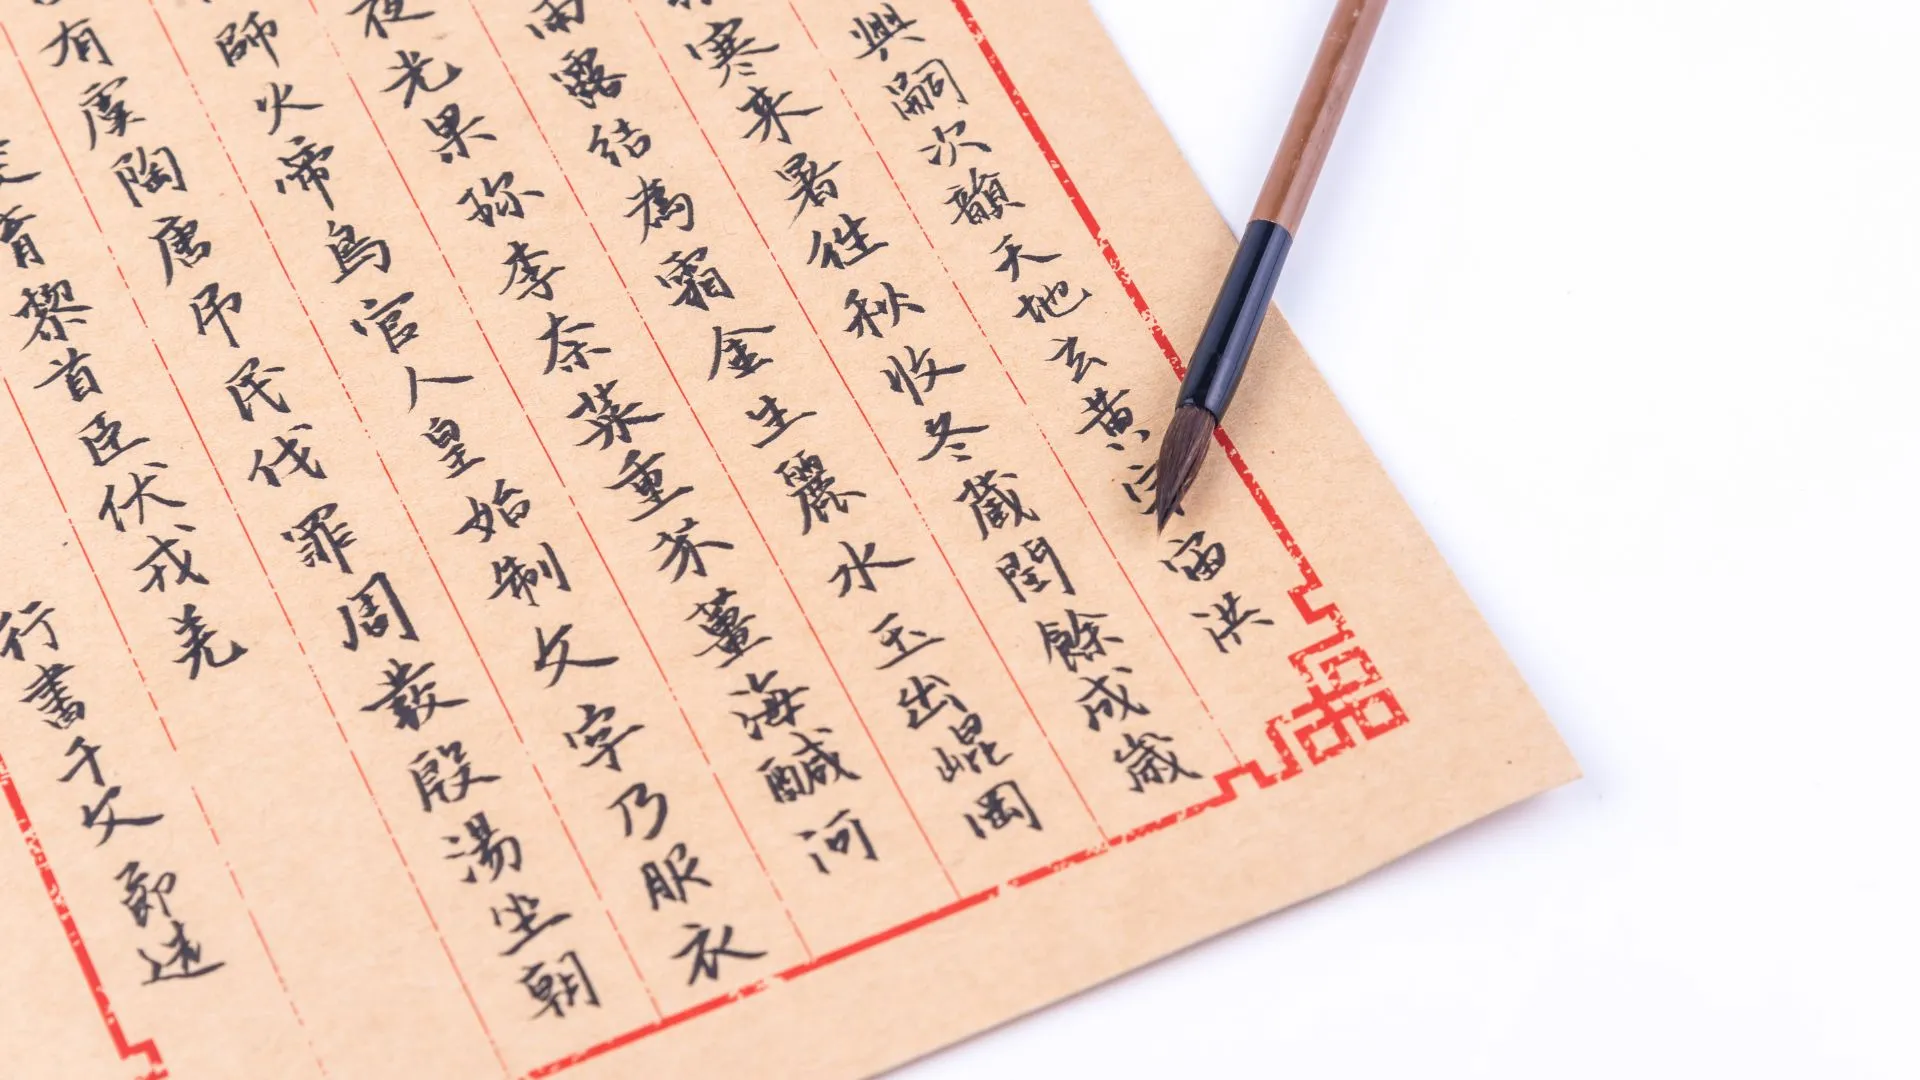 興嗣次韻天地玄黃宇宙洪
寒来暑徃秋收冬藏閏餘成歲
雨露結為霜金生麗水玉出崐岡
夜光果珎李奈菜重芥薑海鹹河
師火帝鳥官人皇始制文字乃服衣
有虞陶唐吊民伐罪周發殷湯坐朝
育黎首臣伏戎羌
行書千文 節選